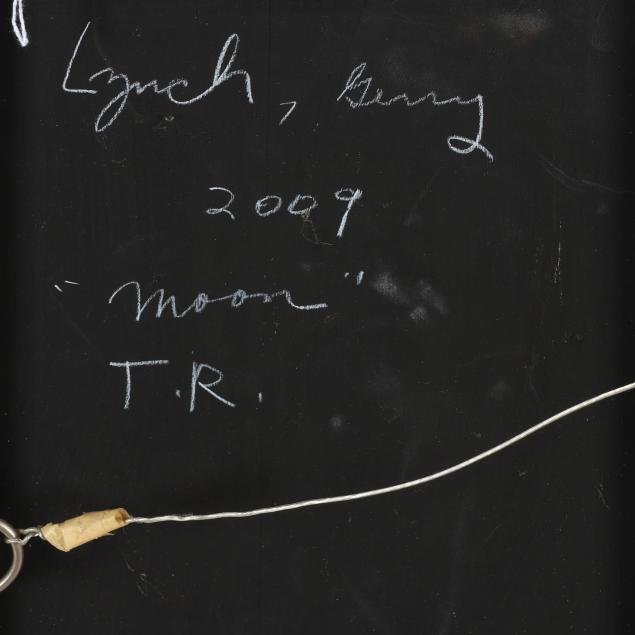 Lynch, Gerry
2009
"Moon"
T.R.